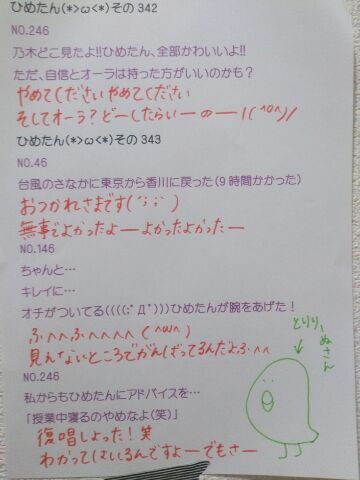 ひめたん(*>ω<*)その342
NO.246
乃木どこ見たよ!!ひめたん、全部かわいいよ!!
ただ、自信とオーラは持った方がいいのかも?
やめてくださいやめてください
そしてオーラ?どーしたらいーのー!(^o^)/
ひめたん(*>ω<*)その343
NO.46
台風のさなかに東京から香川に戻った(9時間かかった)
おつかれさまです(´;;`)
無事でよかったよーよかったよかったー
NO.146
ちゃんと…
キレイに…
オチがついてる((((;ﾟДﾟ)))ひめたんが腕をあげた!
ふへへふへへへへ(^ω^)
見えないところでがんばってるんだよふへへ
とりりーぬさん
NO.246
私からもひめたんにアドバイスを…
「授業中寝るのやめなよ(笑)」
復唱しよった!笑
わかってはいるんですよーでもさー